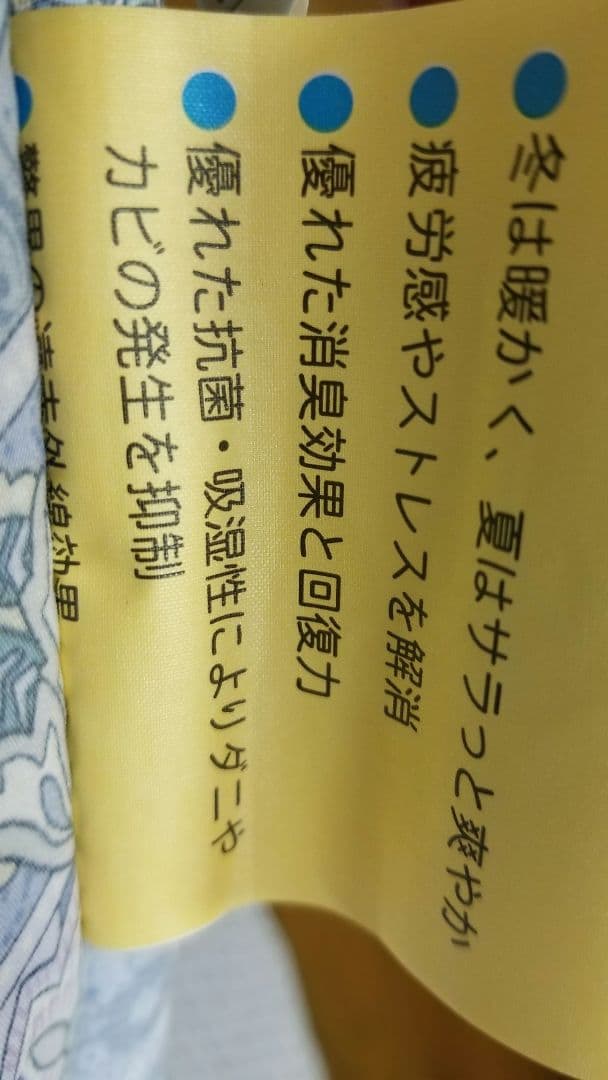 ● 冬は暖かく、夏はサラっと爽やか
● 疲労感やストレスを解消
● 優れた消臭効果と回復力
● 優れた抗菌・吸湿性によりダニや
カビの発生を抑制
● 驚異の遠赤外線効果